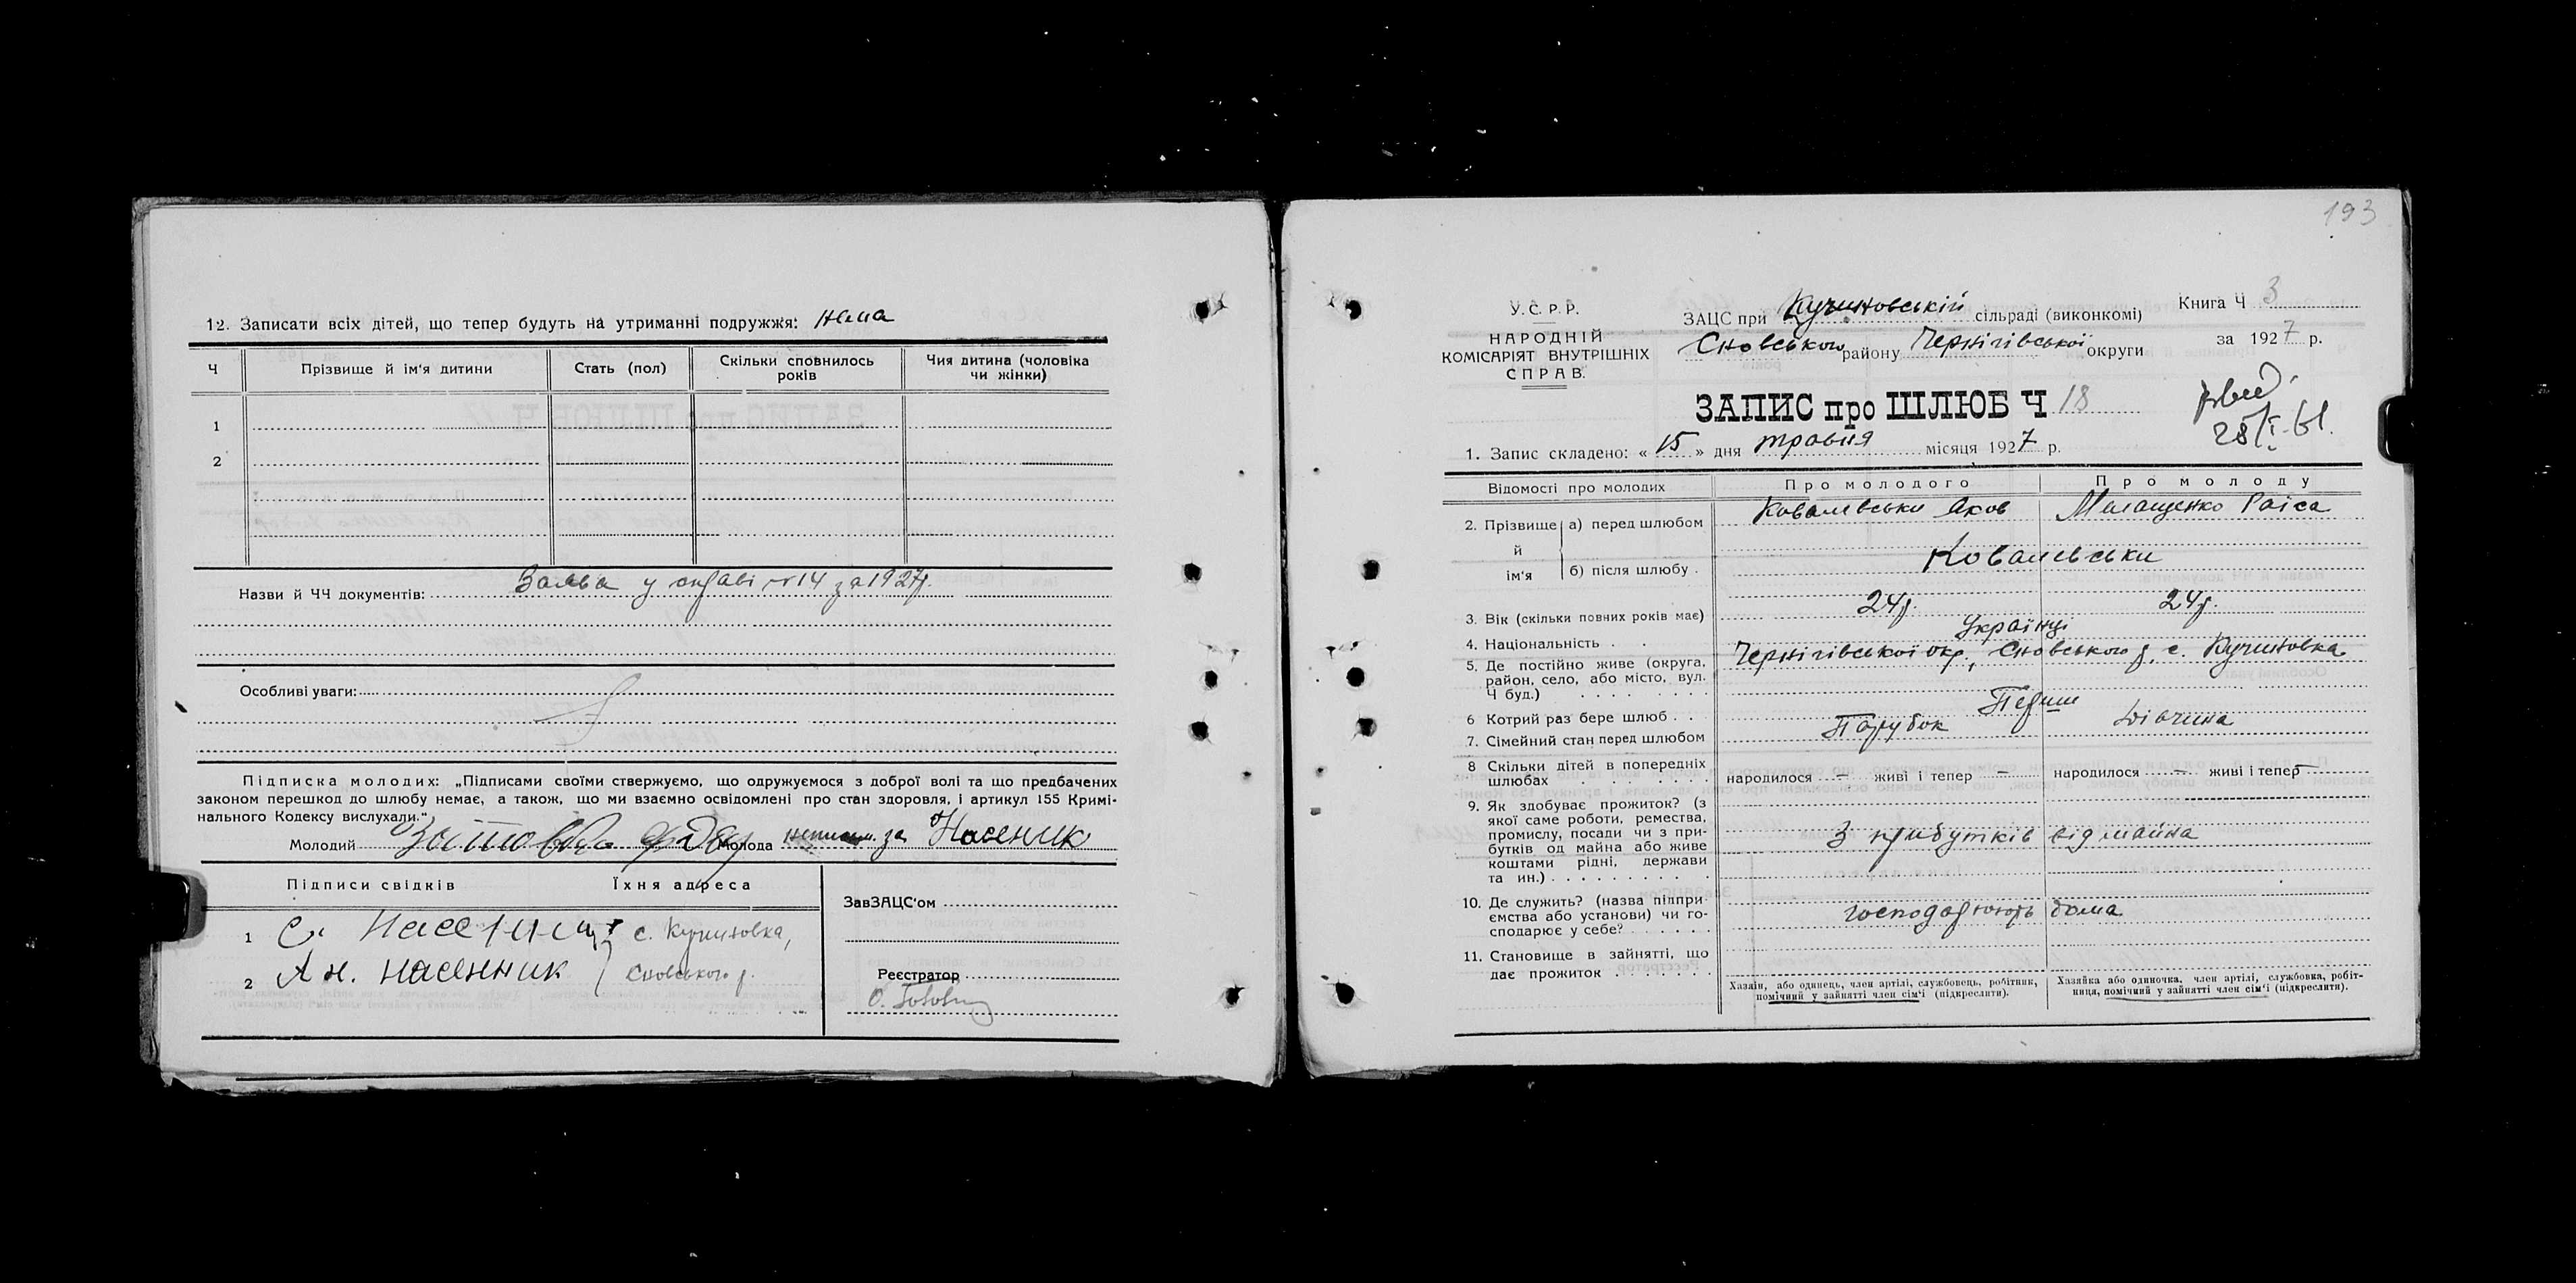 12. Записати всіх дітей, що тепер будуть на утриманні подружжя: Нема
Ч Прізвище й ім'я дитини Стать (пол) Скільки сповнилось років Чия дитина (чоловіка чи жінки)
1
2
Назви й ЧЧ документів: Заява у справі № 14 за 1927 р.
Особливі уваги:
Підписка молодих: „Підписами своїми стверджуємо, що одружуємося з доброї волі та що предбачених
законом перешкод до шлюбу немає, а також, що ми взаємно освідомлені про стан здоровля, і артикул 155 Кримі-
нального Кодексу вислухали."
Молодий Молода неписьм. за Насеник
Підписи свідків Їхня адреса
ЗавЗАЦС'ом
1 с. Кучиновка,
2 Ан. Насенник Сновського р.
Реєстратор
193
У.С.Р.Р.
НАРОДНІЙ
КОМІСАРІЯТ ВНУТРІШНІХ
СПРАВ.
ЗАЦС при Кучиновській сільраді (виконкомі)
Сновського району Чернігівської округи
Книга Ч 3
за 1927 р.
ЗАПИС про ШЛЮБ Ч 18
28/I-61.
1. Запис складено: « 15 » дня травня місяця 1927 р.
Відомості про молодих Про молодого Про молоду
2. Прізвище й ім'я а) перед шлюбом Ковалевськи Яков Малащенко Раіса
б) після шлюбу Ковалевськи
3. Вік (скільки повних років має) 24 р. 24 р.
4. Національність Українці
5. Де постійно живе (округа, район, село, або місто, вул. Ч буд.) Чернігівської окр., Сновського р, с. Кучиновка
6 Котрий раз бере шлюб Перши
7. Сімейний стан перед шлюбом Парубок Дівчина
8 Скільки дітей в попередніх шлюбах народилося — живі і тепер — народилося — живі і тепер —
9. Як здобуває прожиток? (з якої саме роботи, ремества, промислу, посади чи з прибутків од майна або живе коштами рідні, держави та ин.) З прибутків від майна
10. Де служить? (назва підприємства або установи) чи господарює у себе? господарюють дома
11. Становище в зайнятті, що дає прожиток
Хазяїн, або одинець, член артілі, службовець, робітник, помічний у зайнятті член сім'ї (підкреслити).
Хазяйка або одиночка, член артілі, службовка, робітниця, помічний у зайнятті член сім'ї (підкреслити).